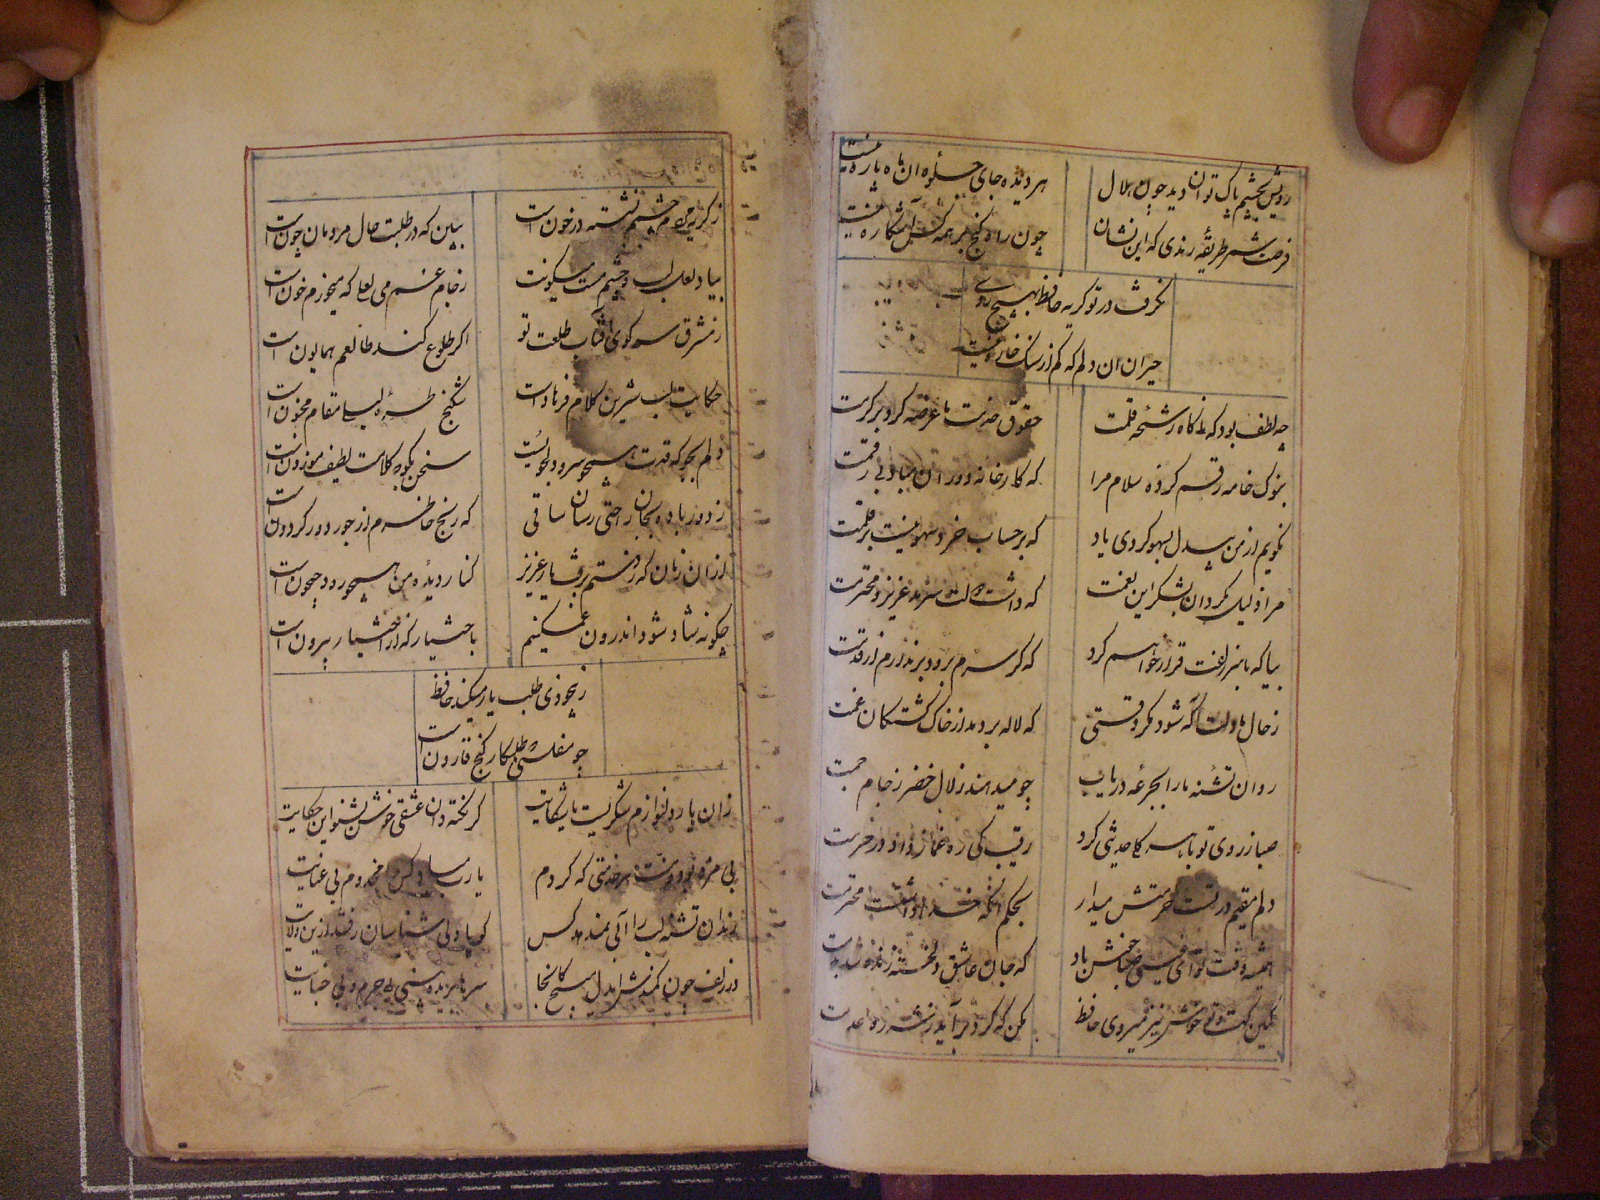 رویش بچشم پاک توان دید چون هلال
هر دیده جای جلوه آن ماه پاره نیست
فرصت شمر طریقه رندی که این نشان
چون راه گنج بر همه کس آشکاره نیست
نگرفت در تو گریه حافظ بهیچ روی
حیران آن دلم که کم از سنگ خاره نیست
چه لطف بود که ناگاه رشحه قلمت
حقوق خدمت ما عرضه کرد بر کرمت
بنوک خامه رقم کرده سلام مرا
که کارخانه دوران مباد بی رقمت
نگویم از من بیدل بسهو کردی یاد
که بر حساب خرد سهو نیست بر قلمت
مرا ذلیل مگردان بشکر این نعمت
که داشت دولت سرمد عزیز و محترمت
بیا که با سر زلفت قرار خواهم کرد
که گر سرم برود بر ندارم از قدمت
ز حال ما دلت آگه شود مگر وقتی
که لاله بر دمد از خاک کشتگان غمت
روان تشنه ما را بجرعه دریاب
چو میدهند زلال خضر ز جام جمت
صبا ز روی تو با هر گل حدیثی کرد
رقیب کی ره غماز داد در حرمت
دلم مقیم در تست حرمتش میدار
بحکم آنکه خدا داشتست محترمت
همیشه وقت تو ای عیسی صبا خوش باد
که جان عاشق دلخسته زنده شد بدمت
کمین گهست و تو خوش تیز میروی حافظ
مکن که گرد بر آید ز شه ره عدمت
ز گریه مردم چشمم نشسته در خون است
ببین که در طلبت حال مردمان چون است
بیاد لعل لب و چشم مست میگونت
ز جام غم می لعلی که میخورم خون است
ز مشرق سر کوی آفتاب طلعت تو
اگر طلوع کند طالعم همایون است
حکایت لب شیرین کلام فرهاد است
شکنج طره لیلی مقام مجنون است
دلم بجو که قدت همچو سرو دلجویست
سخن بگو که کلامت لطیف موزون است
ز دور باده بجان راحتی رسان ساقی
که رنج خاطرم از جور دور گردون است
از آن زمان که ز دستم برفت یار عزیز
کنار دیده من همچو رود جیحون است
چگونه شاد شود اندرون غمگینم
باختیار که از اختیار بیرون است
ز بیخودی طلب یار میکند حافظ
چو مفلسی که طلبکار گنج قارون است
زان یار دلنوازم شکریست با شکایت
گر نکته دان عشقی خوش بشنو این حکایت
بی مزد بود و منت هر خدمتی که کردم
یا رب مباد کس را مخدوم بی عنایت
رندان تشنه لب را آبی نمیدهد کس
گویا ولی شناسان رفتند ازین ولایت
در زلف چون کمندش ای دل مپیچ کانجا
سرها بریده بینی بی جرم و بی جنایت